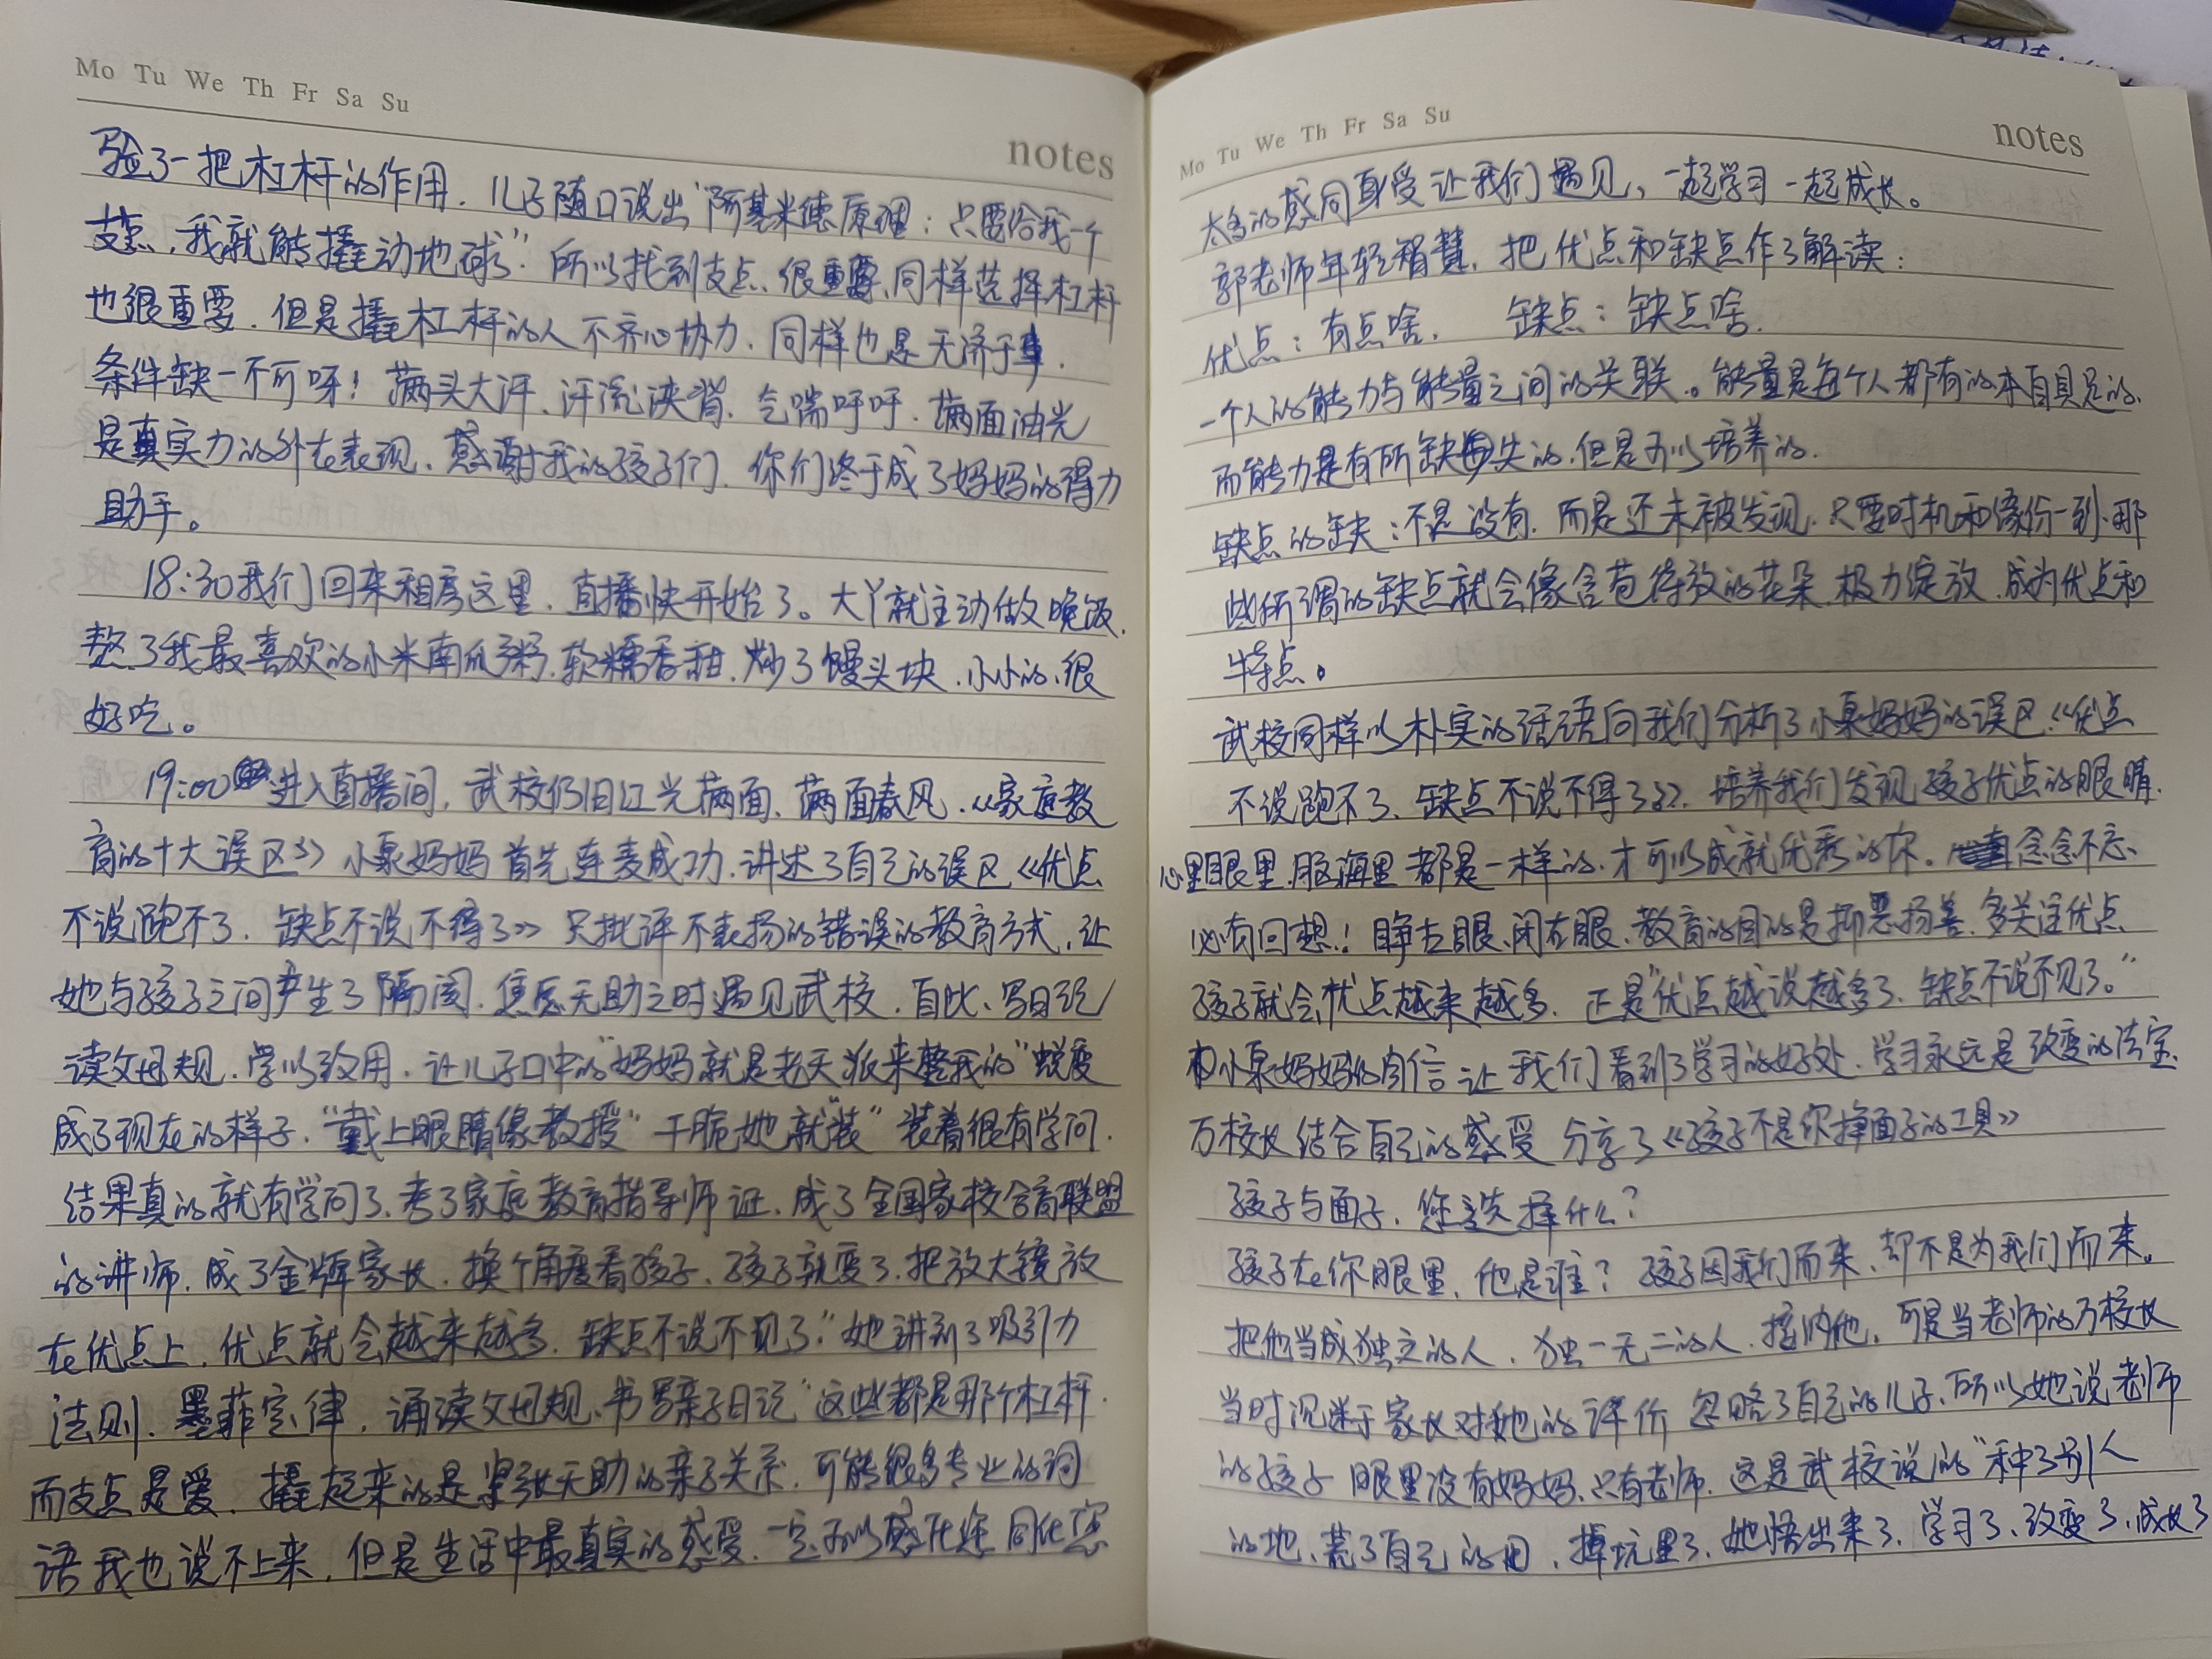 Mo Tu We Th Fr Sa Su
notes
验了一把杠杆的作用.儿子随口说出"阿基米德原理:只要给我一个
支点,我就能撬动地球"所以找到支点很重要,同样选择杠杆
也很重要.但是撬杠杆的人不齐心协力.同样也是无济于事.
条件缺一不可呀!满头大汗、汗流浃背.气喘吁吁.满面油光
是真实力的外在表现.感谢我的孩子们.你们终于成了妈妈的得力
助手。
18:30我们回来租房这里.直播快开始了。大丫就主动做晚饭.
熬了我最喜欢的小米南瓜粥.软糯香甜.炒了馒头块.小小的.很
好吃。
19:00进入直播间,武校仍旧红光满面、满面春风.《家庭教
育的十大误区》小泉妈妈首先连麦成功.讲述了自己的误区《优点
不说跑不了.缺点不说不得了》只批评不表扬的错误的教育方式,让
她与孩子之间产生了隔阂.焦虑无助之时遇见武校.自此、写日记
读父母规.学以致用.让儿子口中的"妈妈就是老天派来整我的"蜕变
成了现在的样子."戴上眼睛像教授"干脆她就"装"装着很有学问.
结果真的就有学问了.考了家庭教育指导师证.成了全国家校合育联盟
的讲师.成了金牌家长.换个角度看孩子、孩子就变了.把放大镜放
在优点上.优点就会越来越多.缺点不说不见了."她讲到了吸引力
法则.墨菲定律.诵读父母规、书写亲子日记"这些都是那个杠杆.
而支点是爱.撬起来的是紧张无助的亲子关系.可能很多专业的词
语我也说不上来.但是生活中最真实的感受.一定可以感化您同化您
Mo Tu We Th Fr Sa Su
notes
太多的感同身受让我们遇见,一起学习一起成长。
郭老师年轻智慧.把优点和缺点作了解读:
优点:有点啥. 缺点:缺点啥.
一个人的能力与能量之间的关联。能量是每个人都有的本自具足的.
而能力是有所缺失的.但是可以培养的.
缺点的缺:不是没有.而是还未被发现.只要时机和缘份一到.那
些所谓的缺点就会像含苞待放的花朵.极力绽放.成为优点和
特点。
武校同样以朴实的话语向我们分析了小泉妈妈的误区《优点
不说跑不了、缺点不说不得了》.培养我们发现孩子优点的眼睛.
心里眼里.脑海里都是一样的.才可以成就优秀的你.念念不忘、
必有回想!睁左眼、闭右眼.教育的目的是抑恶扬善.多关注优点
孩子就会优点越来越多.正是"优点越说越多了.缺点不说不见了。"
小泉妈妈的自信让我们看到了学习的好处.学习永远是改变的法宝.
万校长结合自己的感受分享了《孩子不是你挣面子的工具》
孩子与面子.您选择什么?
孩子在你眼里.他是谁?孩子因我们而来.却不是为我们而来。
把他当成独立的人.独一无二的人.接纳他.可是当老师的万校长
当时沉迷于家长对她的评价忽略了自己的儿子.所以她说老师
的孩子眼里没有妈妈.只有老师.这是武校说的"种了别人
的地、荒了自己的田.掉坑里了.她悟出来了.学习了.改变了.成长了